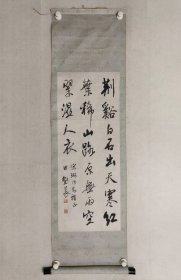 荆谿白石出天寒紅
葉稀山路原無雨空
翠濕人衣